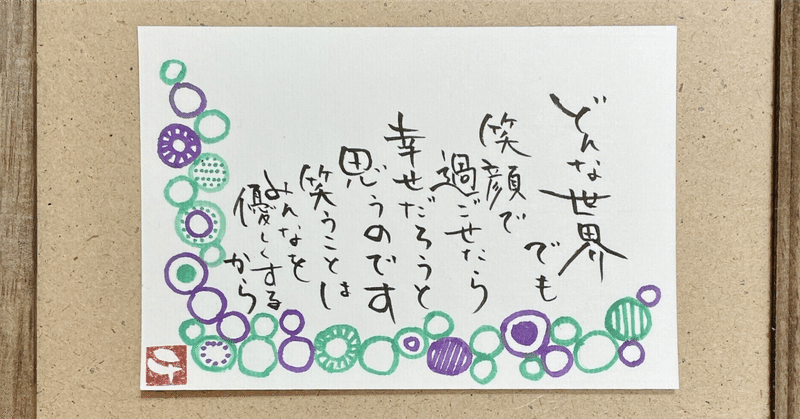 どんな世界
でも
笑顔で
過ごせたら
幸せだろうと
思うのです
笑うことは
みんなを
優しくする
から